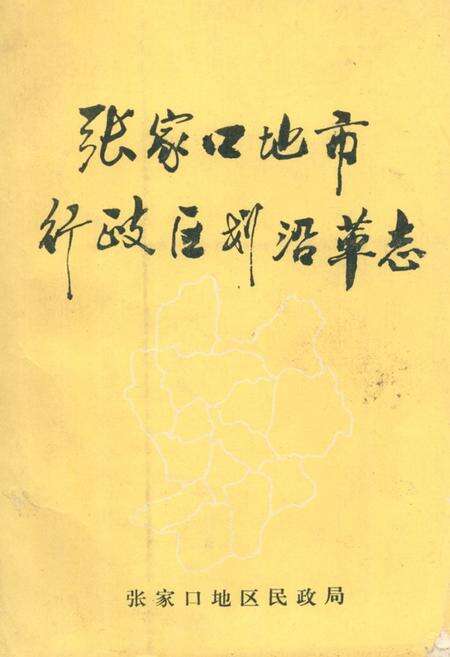 张家口地市
行政区划沿革志
张家口地区民政局